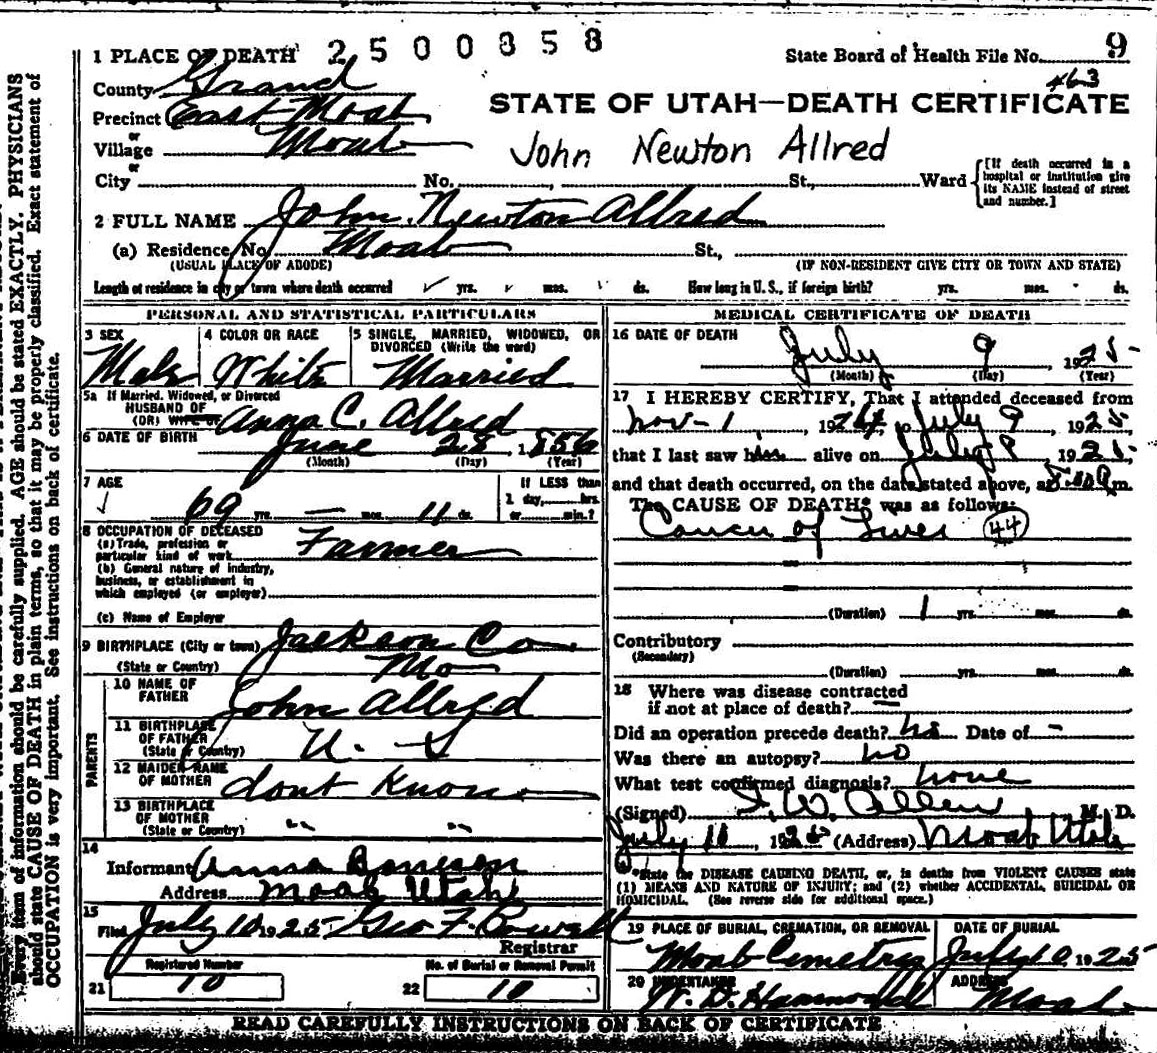 2500858
1 PLACE OF DEATH
State Board of Health File No. 9
463
County Grand
STATE OF UTAH—DEATH CERTIFICATE
Precinct East Moab
or
Village Moab
John Newton Allred
or
City No. , St., Ward
[If death occurred in a hospital or institution give its NAME instead of street and number.]
2 FULL NAME John Newton Allred
(a) Residence No. Moab St.,
(USUAL PLACE OF ABODE) (IF NON-RESIDENT GIVE CITY OR TOWN AND STATE)
Length of residence in city or town where death occurred yrs. mos. ds. How long in U. S., if foreign birth? yrs. mos. ds.
PERSONAL AND STATISTICAL PARTICULARS
3 SEX
Male
4 COLOR OR RACE
White
5 SINGLE, MARRIED, WIDOWED, OR
DIVORCED (Write the word)
Married
5a If Married, Widowed, or Divorced
HUSBAND OF
(OR) WIFE OF Anna C. Allred
6 DATE OF BIRTH June 28 1856
(Month) (Day) (Year)
7 AGE
69 yrs. — mos. 11 ds.
If LESS than
1 day, hrs.
or min.?
8 OCCUPATION OF DECEASED
(a) Trade, profession or
particular kind of work Farmer
(b) General nature of industry,
business, or establishment in
which employed (or employer)
(c) Name of Employer
9 BIRTHPLACE (City or town) Jackson Co.
(State or Country) Mo
PARENTS
10 NAME OF
FATHER John Allred
11 BIRTHPLACE
OF FATHER
(State or Country) U. S
12 MAIDEN NAME
OF MOTHER dont Know
13 BIRTHPLACE
OF MOTHER
(State or Country) " "
14
Informant Anna
Address Moab Utah
15
Filed July 10 1925 Geo F. Powell
Registrar
Registered Number
21 10
No. of Burial or Removal Permit
22 10
MEDICAL CERTIFICATE OF DEATH
16 DATE OF DEATH July 9 1925
(Month) (Day) (Year)
17 I HEREBY CERTIFY, That I attended deceased from
Nov-1, 1924, to July 9, 1925,
that I last saw him alive on July 9 1925,
and that death occurred, on the date stated above, at m.
The CAUSE OF DEATH* was as follows:
Cancer of Liver 44
(Duration) 1 yrs. mos. ds.
Contributory
(Secondary)
(Duration) yrs. mos. ds.
18 Where was disease contracted
if not at place of death? —
Did an operation precede death? no Date of —
Was there an autopsy? no
What test confirmed diagnosis? none
(Signed) W. Allen M. D.
July 10, 1925 (Address) Moab Utah
*State the DISEASE CAUSING DEATH, or, in deaths from VIOLENT CAUSES state
(1) MEANS AND NATURE OF INJURY; and (2) whether ACCIDENTAL, SUICIDAL OR
HOMICIDAL. (See reverse side for additional space.)
19 PLACE OF BURIAL, CREMATION, OR REMOVAL
Moab Cemetery
DATE OF BURIAL
July 10 1925
20 UNDERTAKER
W. D. Hammond
ADDRESS
Moab
READ CAREFULLY INSTRUCTIONS ON BACK OF CERTIFICATE
Every item of information should be carefully supplied. AGE should be stated EXACTLY. PHYSICIANS
should state CAUSE OF DEATH in plain terms, so that it may be properly classified. Exact statement of
OCCUPATION is very important. See instructions on back of certificate.